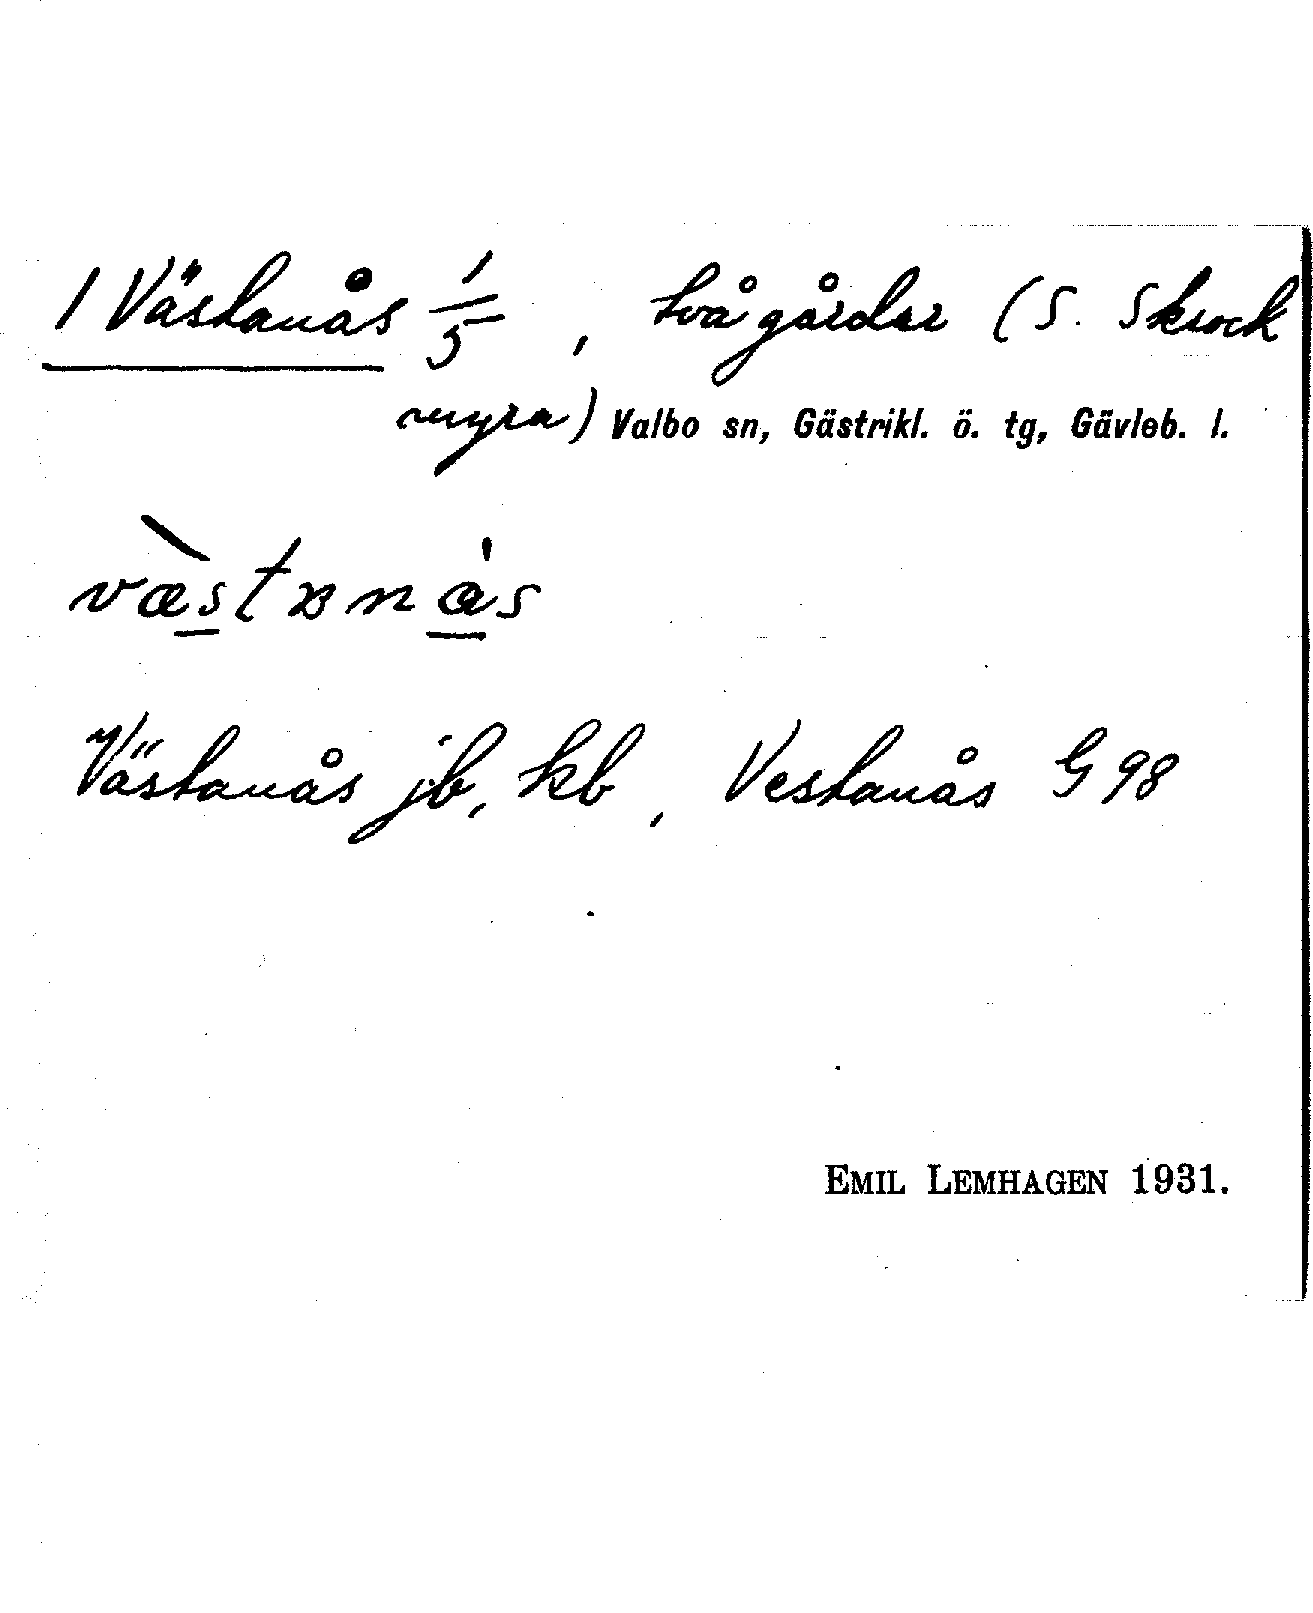 1 Västanås 1/5, två gårdar (S. Skrock
myra) Valbo sn, Gästrikl. ö. tg, Gävleb. l.
væ̀stɐnås
Västanås jb, kb, Vestanås G 98
EMIL LEMHAGEN 1931.